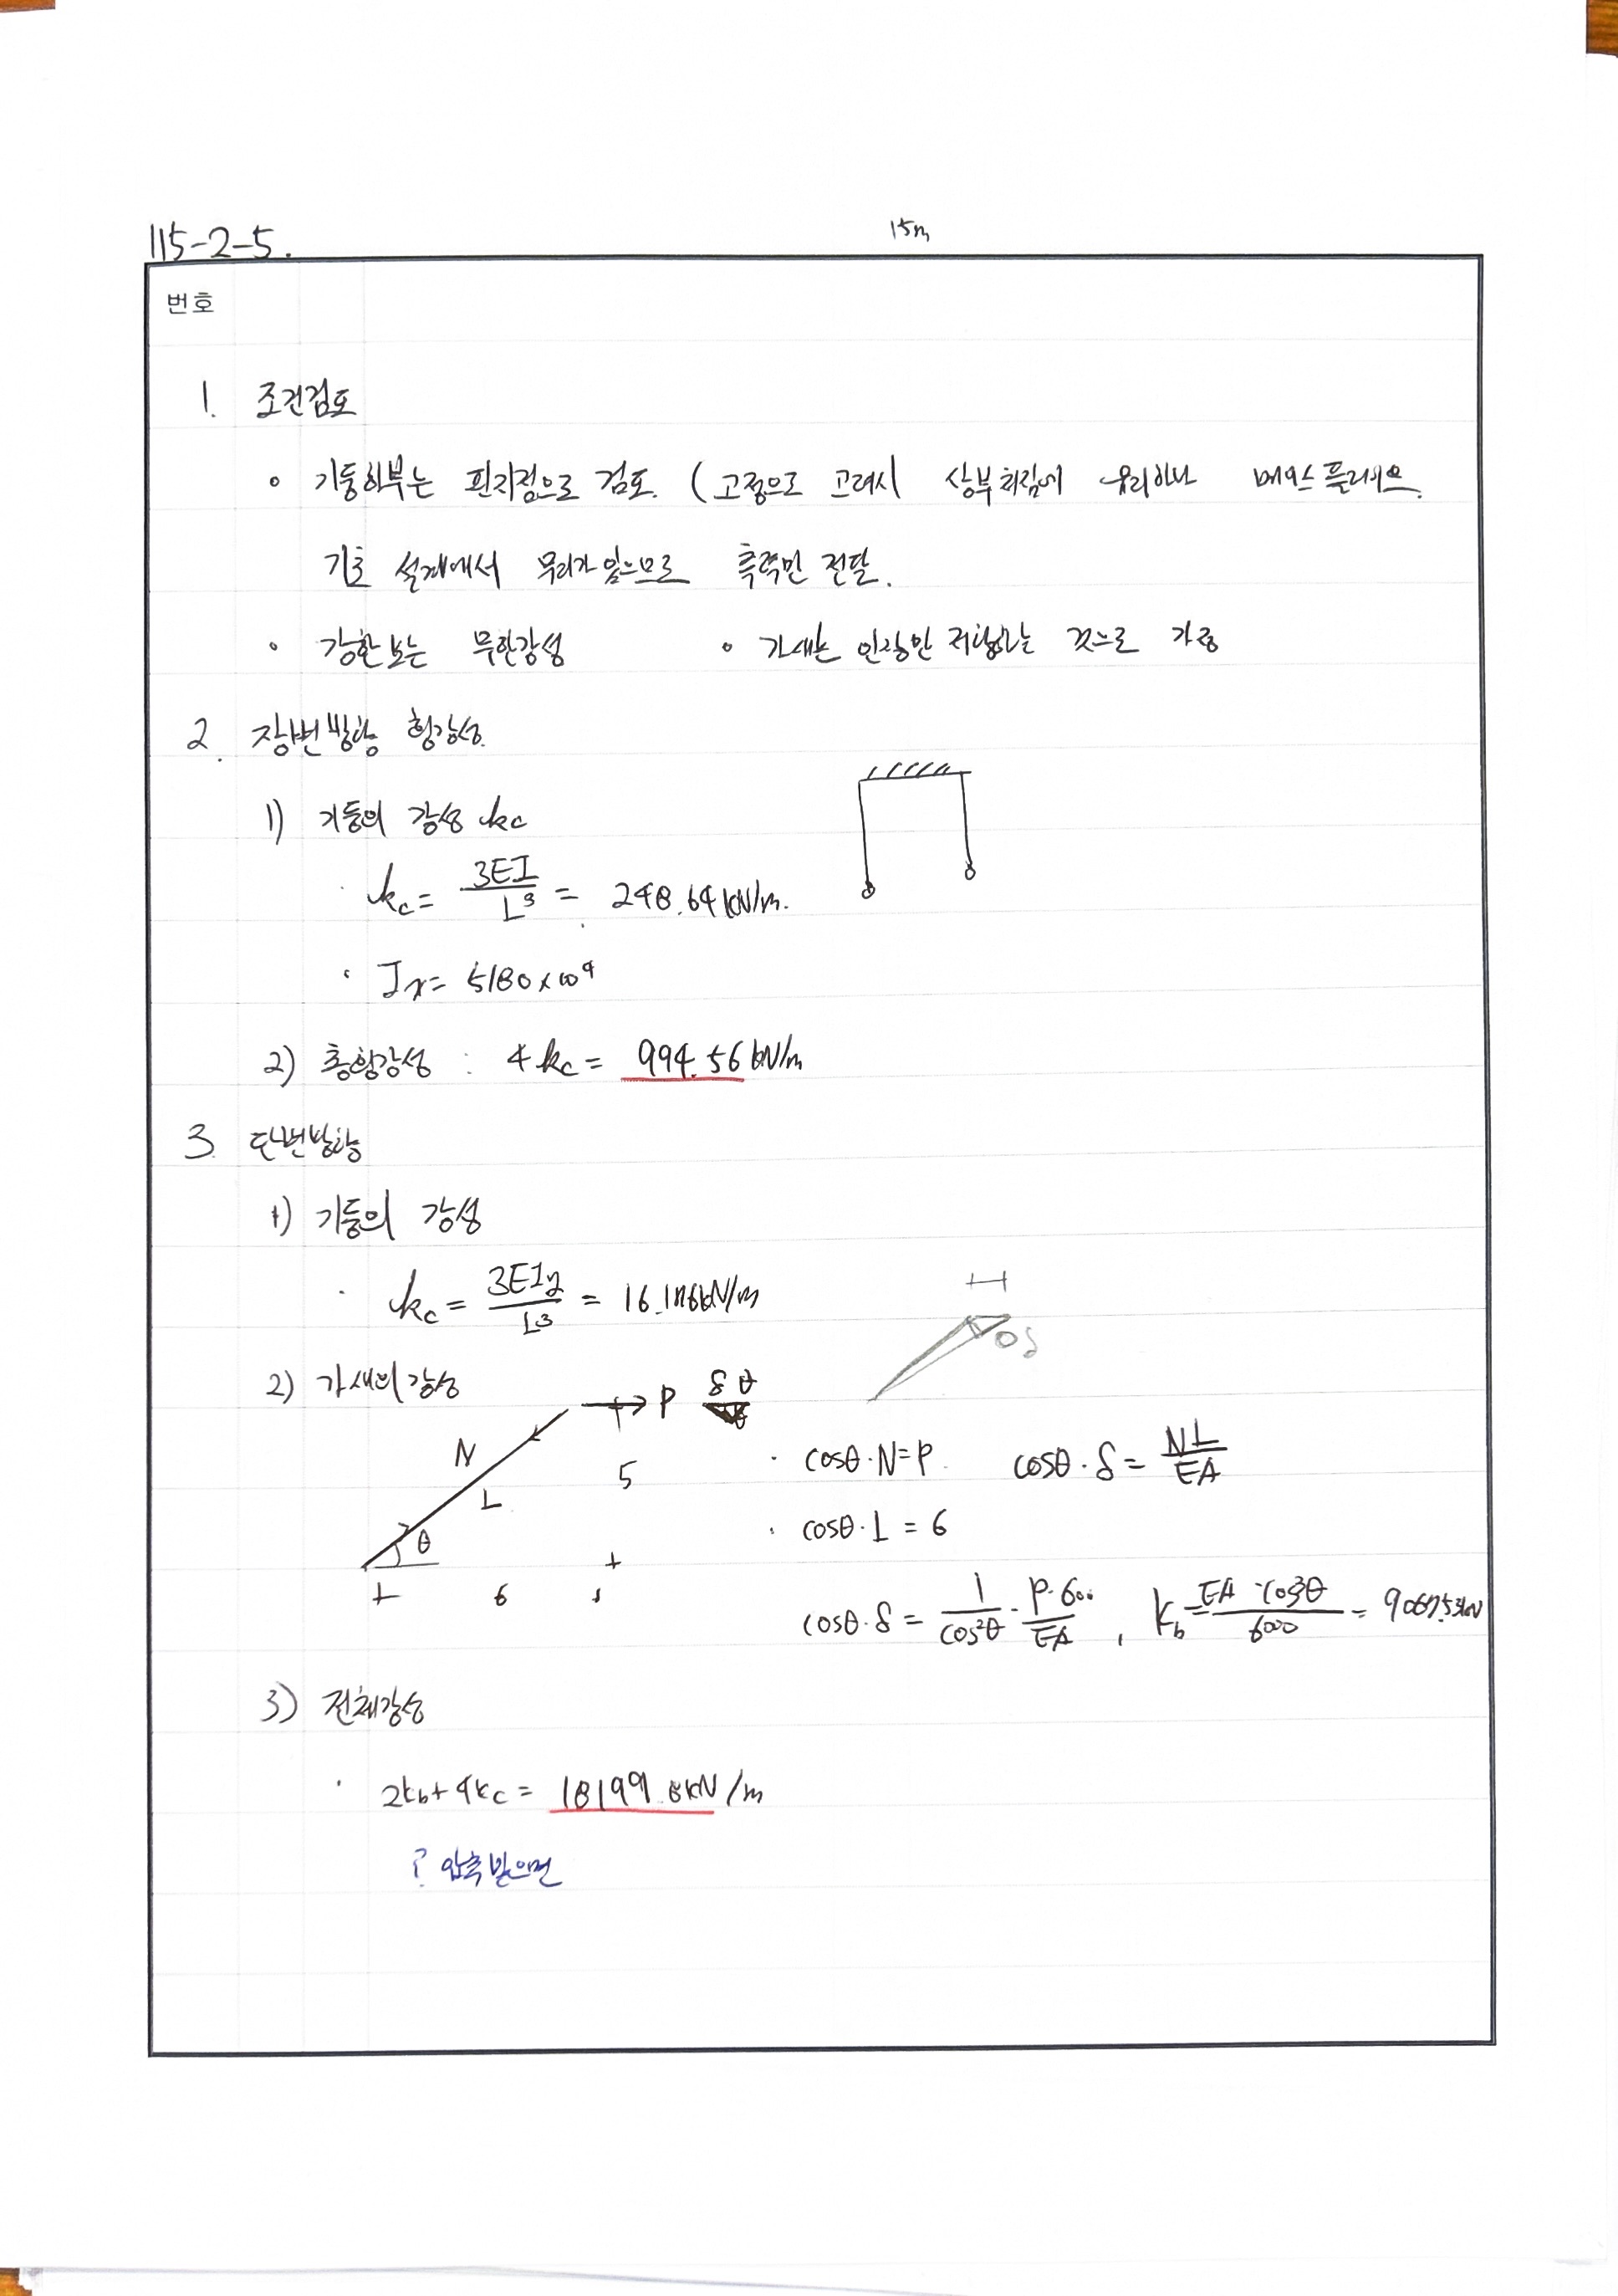 15m
115-2-5.
번호
1. 조건검토
◦ 기둥하부는 핀지점으로 검토. (고정으로 고려시 상부처짐에 유리하나 베이스플레이트.
기초 설계에서 무리가 있으므로 축력만 전달.
◦ 강한보는 무한강성 ◦ 가새는 인장만 저항하는 것으로 가정
2. 장변방향 횡강성.
1) 기둥의 강성 kc
· kc = 3EI/L³ = 248.64 kN/m.
· Ix = 5180×10⁴
2) 총횡강성 : 4kc = 994.56 kN/m
3. 단변방향
1) 기둥의 강성
· kc = 3EIy/L³ = 16.1 kN/m
2) 가새의 강성
P δ θ
N L θ 5 6
H δ
· cosθ·N=P. cosθ·δ = NL/EA
· cosθ·L = 6
cosθ·δ = 1/cos²θ · P·600/EA , Kb = EA·cos³θ/6000 = 9067.53kN
3) 전체강성
· 2kb+4kc = 18199.8kN/m
? 압축받으면